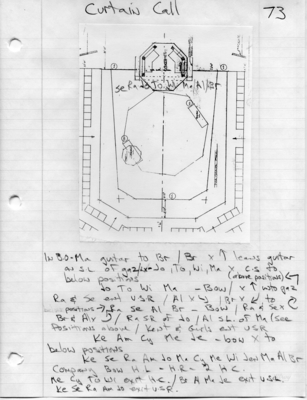 Curtain Call 73
Se Ra Jo To Wi Ma Al Br
In BO-Ma guitar to Br / Br X ↑ leaves guitar
on SL of gaz Jo, To, Wi, Ma X C.S to
below positions (above positions)
Jo To Wi Ma - Bow / X ↑ into gaz
Ra & Se exit USR / Al X / Br X to
positions → Ra Se Al Br - Bow / Ra & Se
Br & Al / Ra SR of Jo / Al SL of Ma (See
Positions above / Kent & Girls exit USR
Ke Am Cy Me Je - bow X to
below positions
Ke Se Ra Am Jo Ma Cy Me Wi Al Br
Company Bow H.L - H.R - H.C.
Me Cy To Wi exit H.C. / Br Al Ma Je exit USL
Ke Se Ra Am Jo exit USR.